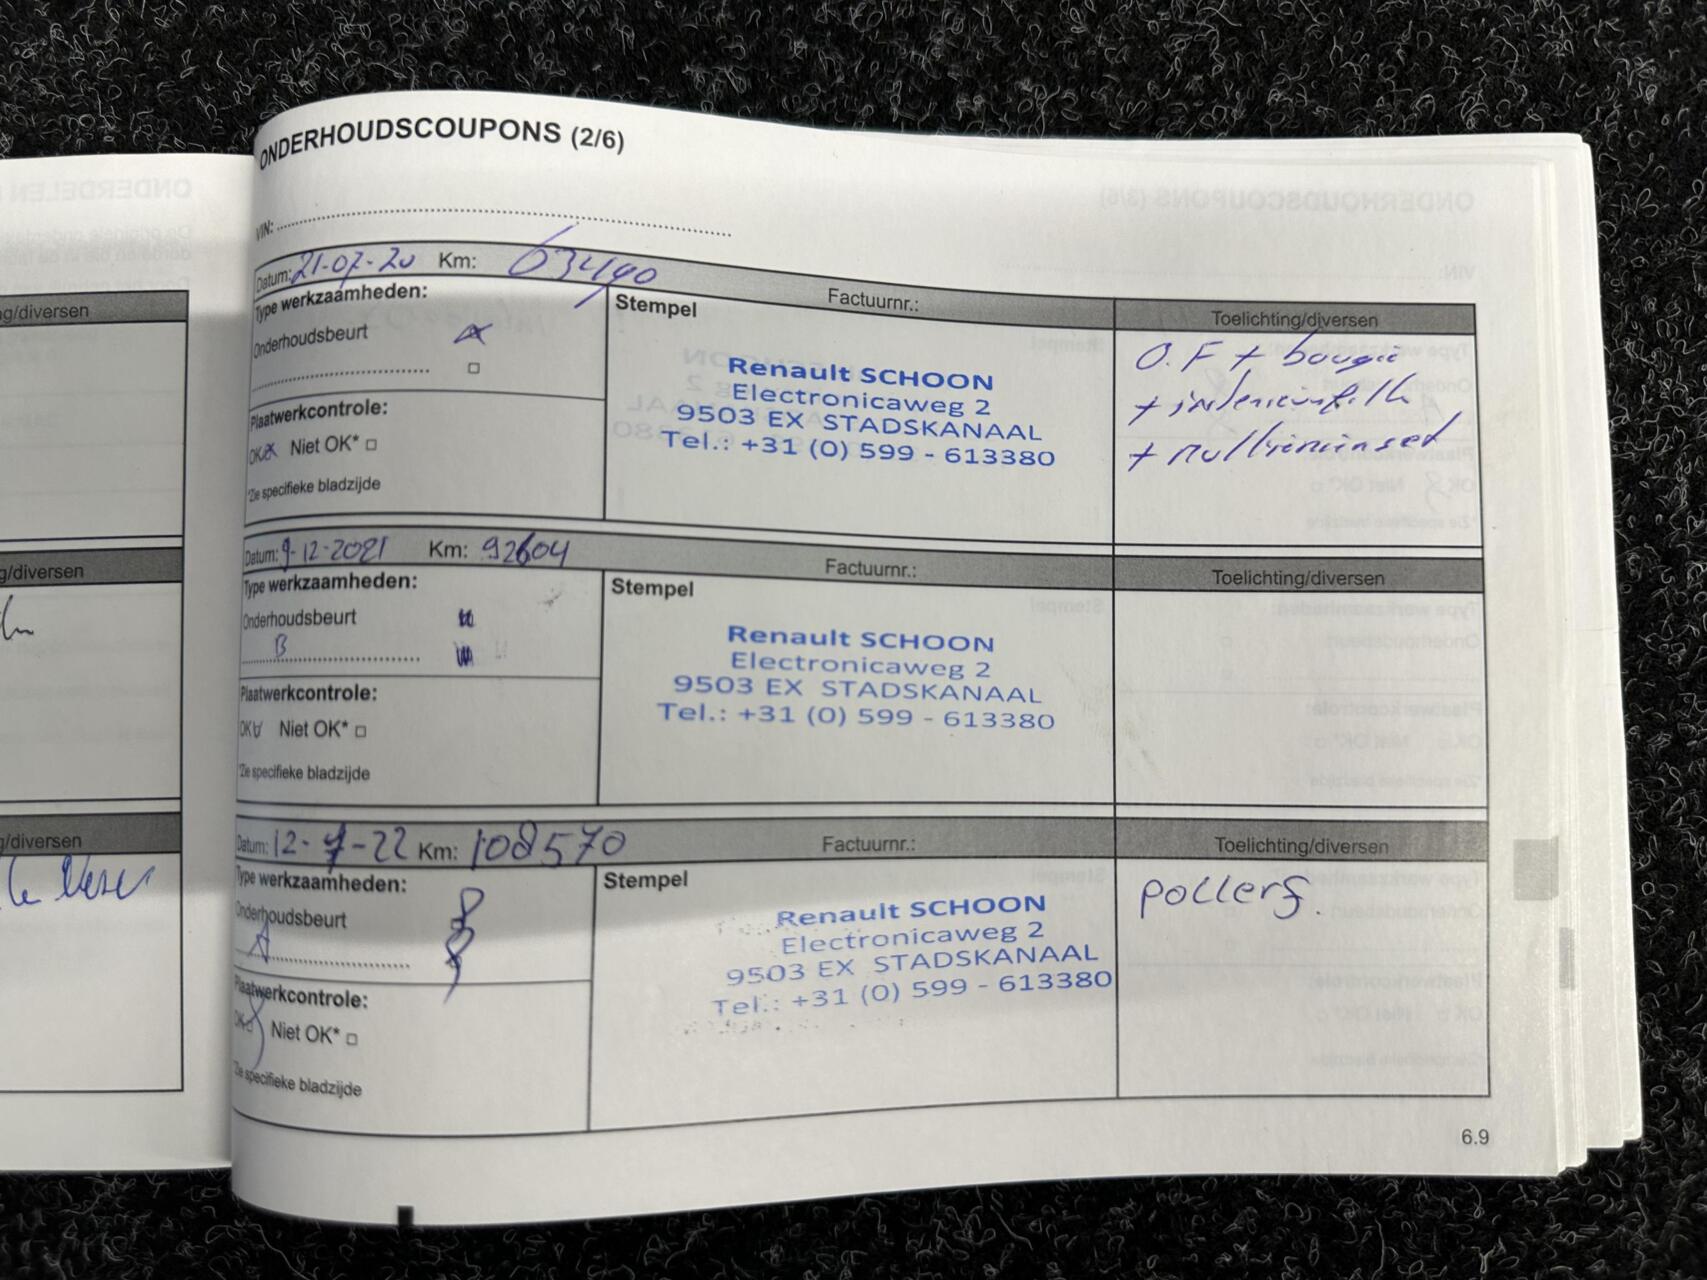 ONDERHOUDSCOUPONS (2/6)
VIN:
Datum: 21-07-20 Km: 63490
Factuurnr.:
Toelichting/diversen
Type werkzaamheden:
Stempel
Onderhoudsbeurt
Plaatwerkcontrole:
OK Niet OK*
*Zie specifieke bladzijde
Renault SCHOON
Electronicaweg 2
9503 EX STADSKANAAL
Tel.: +31 (0) 599 - 613380
O.F + bougie
+ interieurfilt
+
Datum: 9-12-2021 Km: 92604
Factuurnr.:
Toelichting/diversen
Type werkzaamheden:
Stempel
Onderhoudsbeurt
B
Plaatwerkcontrole:
OK Niet OK*
*Zie specifieke bladzijde
Renault SCHOON
Electronicaweg 2
9503 EX STADSKANAAL
Tel.: +31 (0) 599 - 613380
Datum: 12-7-22 Km: 108570
Factuurnr.:
Toelichting/diversen
Type werkzaamheden:
Stempel
Onderhoudsbeurt
A
Plaatwerkcontrole:
OK Niet OK*
*Zie specifieke bladzijde
Renault SCHOON
Electronicaweg 2
9503 EX STADSKANAAL
Tel.: +31 (0) 599 - 613380
pollenf.
6.9
g/diversen
g/diversen
g/diversen